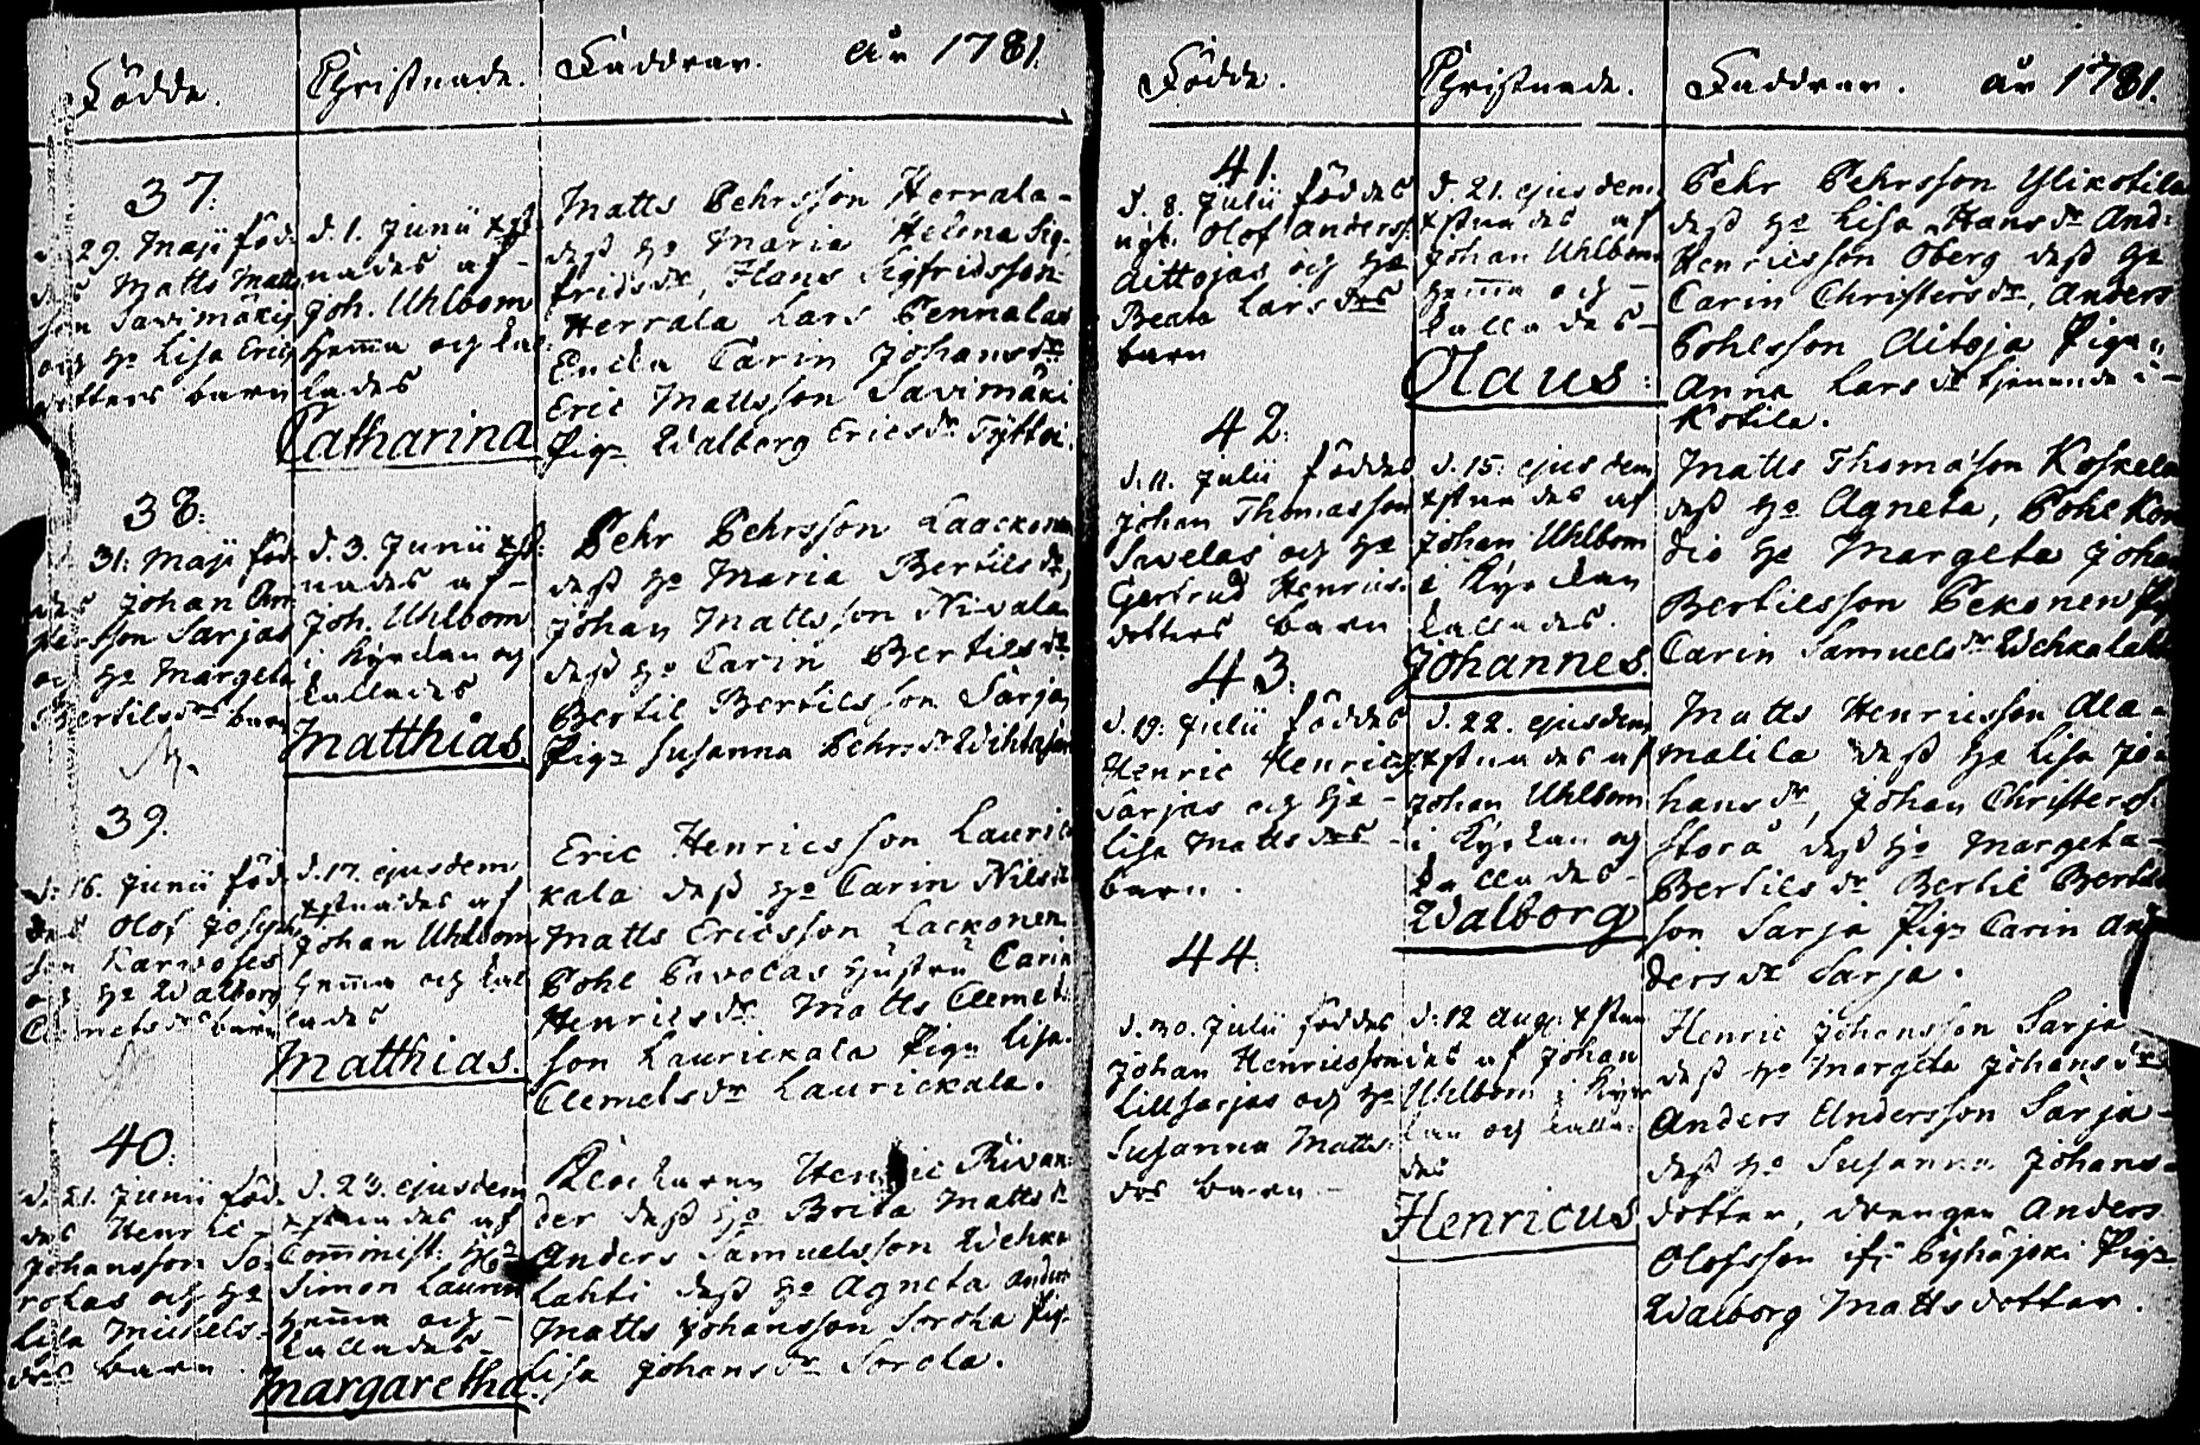 Födde.
Christnade.
Faddrar. År 1781.
37:
29. Maji föd-
Matts Matts
son Savimäkis
och h:o Lisa Erics
dotters barn
d. 1. Junii xst-
nades af
Joh. Uhlbom
hema och kal-
lades
Catharina
Matts Pehrsson Herrala-
dess h:o Maria Helena Sig-
fridsdr, Hans Sigfridsson
Herrala Lars Pennalas
Enka Carin Johansdr
Eric Mattsson Savimäki
Pig: Walborg Ericsdr Tyttoi.
38:
31: Maji föd-
des Johan An-
dersson Sarjas
och h:o Margeta
Bertilsdrs barn
d. 3. Junii xst:
nades af-
Joh. Uhlbom
i Kyrckan og
kallades
Matthias.
Pehr Pehrsson Laackonen
dess h:o Maria Bertilsdr,
Johan Mattsson Nivala
dess h:o Carin Bertilsdr
Bertil Bertilsson Sarja,
Pig: Susanna Pehrsdr
39.
d. 16. Junii föd-
des Olof Josephs
son Karvoses
och h:o Walborg
Clemetsdrs barn
d. 17. ejusdem
xstnades af
Johan Uhlbom
hema och kal
lades
Matthias.
Eric Henricsson Lauric-
kala dess h:o Carin Nilsdr
Matts Ericsson Lackonen
Pohl Pavolas hustru Carin
Henricsdr Matts Clemet-
son Laurickala Pig: Lisa
Clemetsdr Laurickala.
40:
d. 21. Junii föd-
des Henric-
Johansson So-
rolas och h:o
Lisa Michels-
drs barn.
d. 23. ejusdem
xstnades af
Cominist: H:r
Simon Laurin
hema och-
kallades-
Margaretha.
Klockaren Henric Rivan-
der dess h:o Brita Mattsdr
Anders Samuelsson Wehka
lahti dess h:o Agneta Andersdr
Matts Johansson Sorola Pig:
Lisa Johansdr Sorola.
Födde.
Christnade.
Faddrar. År 1781.
41.
d. 8. Julii föddes
ngb. Olof Anderss:
Aittojas och h:o
Beata Larsdrs
barn
d. 21. ejusdem
xstnades af
Johan Uhlbom
hema och-
kallades-
Olaus:
Pehr Pehrsson Ylikotila
dess h:o Lisa Hansdr And:
Henricsson Öberg dess h:o
Carin Christersdr, Anders
Pohlsson Aitoja Pigan
Anna Larsdr tjenande i-
Kotila.
42:
d. 11. Julii föddes
Johan Thomasson
Savelas och h:o
Gertrud Henrics-
dotters barn
d. 15. ejusdem
xstnades af
Johan Uhlbom
i Kyrckan
kallades.
Johannes.
Matts Thomason Koskela
dess h:o Agneta, Pohl Kon
dio h:o Margeta Johan
Bertilsson Pekonen Pig
Carin Samuelsdr Wehkalaht
43.
d. 19. Julii föddes
Henric Henricss:
Sarjas och h:o-
Lisa Mattsdrs-
barn.
d. 22. ejusdem
xstnades af
Johan Uhlbom
i Kyrkan og
kallades-
Walborg
Matts Henricsson Ala-
malila dess h:o Lisa Jo-
hansdr, Johan Christerss:
Storå dess h:o Margeta-
Bertilsdr Bertil Bertils
son Sarja Pig: Carin An-
dersdr Sarja.
44.
d. 30. Julii föddes
Johan Henricsson
Lillsarjas och h:o
Susanna Matts-
drs barn-
d. 12 Aug: xstna
des af Johan
Uhlbom i Kyr
kan och kalla-
des
Henricus
Henric Johansson Sarja
dess h:o Margeta Johansdr
Anders Andersson Sarja-
dess h:o Susanna Johans-
dotter, drengen Anders
Olofsson ifr Pyhäjoki Pig:
Walborg Mattsdotter.